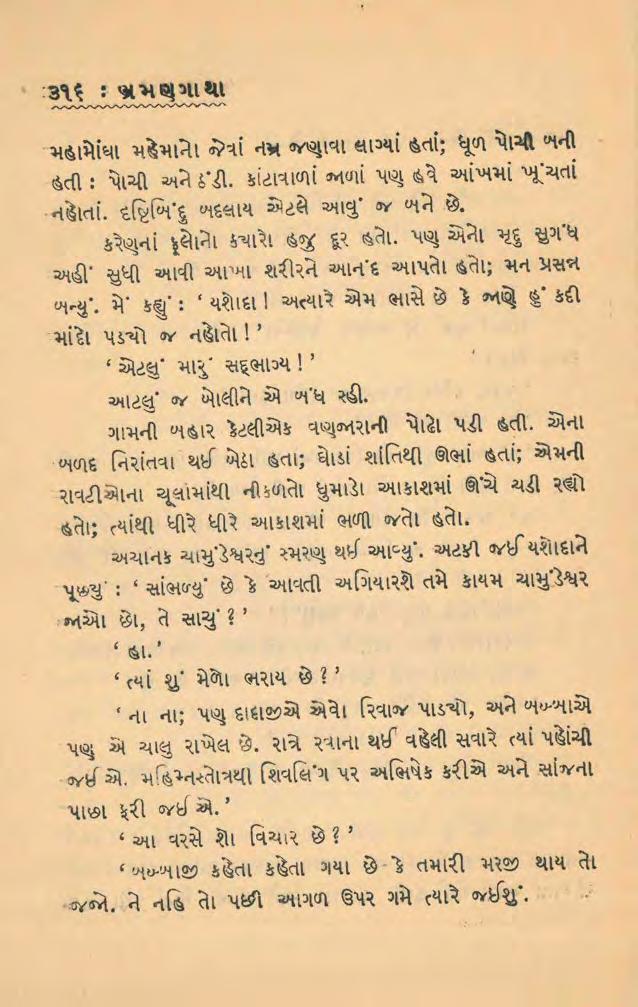 ૩૧૬ : ભ્રમણગાથા
મહામોંઘા મહેમાનો જેવાં નમ્ર જણાવા લાગ્યાં હતાં; ધૂળ પોચી બની
હતી : પોચી અને ઠંડી. કાંટાવાળાં જાળાં પણ હવે આંખમાં ખૂંચતાં
નહોતાં. દૃષ્ટિબિંદુ બદલાય એટલે આવું જ બને છે.
કરેણનાં ફૂલોનો ક્યારો હજુ દૂર હતો. પણ એનો મૃદુ સુગંધ
અહીં સુધી આવી આખા શરીરને આનંદ આપતો હતો; મન પ્રસન્ન
બન્યું. મેં કહ્યું : ‘ યશોદા ! અત્યારે એમ ભાસે છે કે જાણે હું કદી
માંદો પડ્યો જ નહોતો ! ’
‘ એટલું મારું સદ્દભાગ્ય ! ’
આટલું જ બોલીને એ બંધ રહી.
ગામની બહાર કેટલીએક વણજારાની પોઠો પડી હતી. એના
બળદ નિરાંતવા થઈ બેઠા હતા; ઘોડાં શાંતિથી ઊભાં હતાં; એમની
રાવટીઓના ચૂલામાંથી નીકળતો ધુમાડો આકાશમાં ઊંચે ચડી રહ્યો
હતો; ત્યાંથી ધીરે ધીરે આકાશમાં ભળી જતો હતો.
અચાનક ચામુંડેશ્વરનું સ્મરણ થઈ આવ્યું. અટકી જઈ યશોદાને
પૂછ્યું : ‘ સાંભળ્યું છે કે આવતી અગિયારશે તમે કાયમ ચામુંડેશ્વર
જાઓ છો, તે સાચું ? ’
‘ હા. ’
‘ ત્યાં શું મેળો ભરાય છે ? ’
‘ ના ના; પણ દાદાજીએ એવો રિવાજ પાડ્યો, અને બખ્ખાએ
પણ એ ચાલુ રાખેલ છે. રાત્રે રવાના થઈ વહેલી સવારે ત્યાં પહોંચી
જઈએ. મહિમ્નસ્તોત્રથી શિવલિંગ પર અભિષેક કરીએ અને સાંજના
પાછા ફરી જઈએ. ’
‘ આ વરસે શો વિચાર છે ? ’
‘ બખ્ખાજી કહેતા કહેતા ગયા છે કે તમારી મરજી થાય તો
જજો. ને નહિ તો પછી આગળ ઉપર ગમે ત્યારે જઈશું.